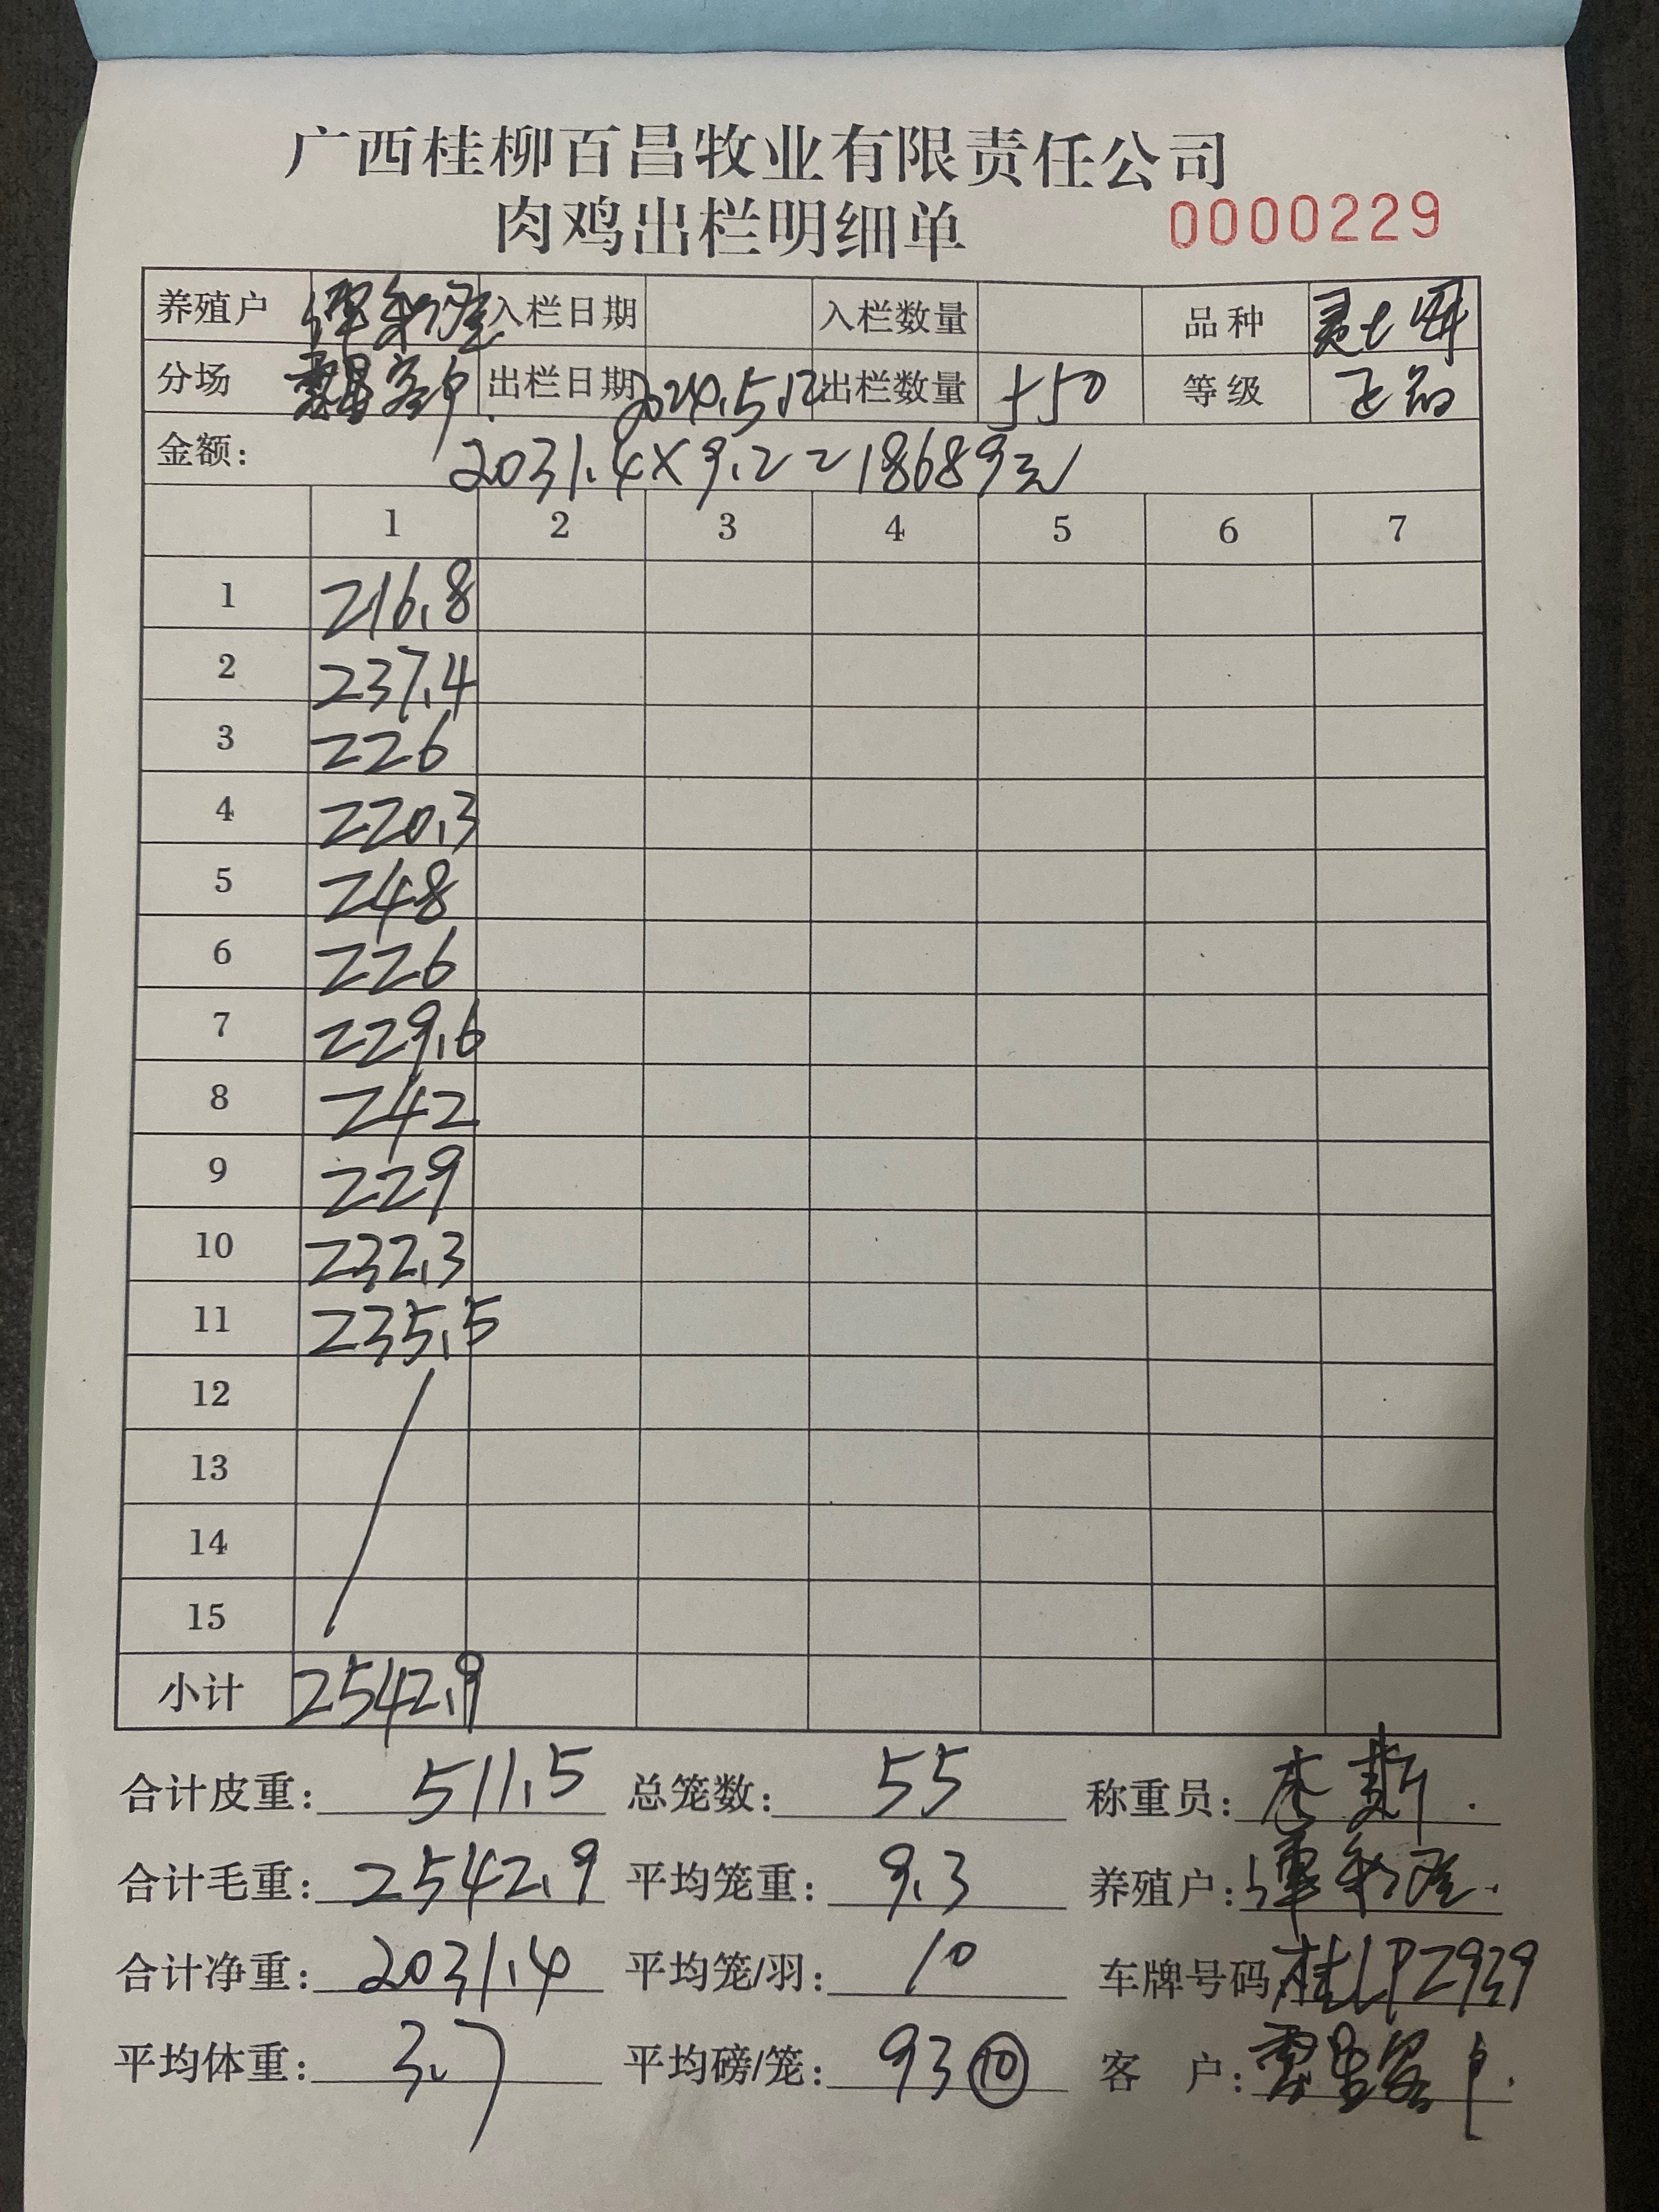 广西桂柳百昌牧业有限责任公司
肉鸡出栏明细单 0000229
养殖户 入栏日期 入栏数量 品种
分场 出栏日期 2024.5.12 出栏数量 550 等级
金额: 2031.4×9.2=18689元
1 2 3 4 5 6 7
1 216.8
2 237.4
3 226
4 220.3
5 248
6 226
7 229.6
8 242
9 229
10 232.3
11 235.5
12
13
14
15
小计 2542.9
合计皮重: 511.5 总笼数: 55 称重员: 李
合计毛重: 2542.9 平均笼重: 9.3 养殖户:
合计净重: 2031.4 平均笼/羽: 10 车牌号码 桂LPZ939
平均体重: 3.7 平均磅/笼: 93 ⑩ 客 户: